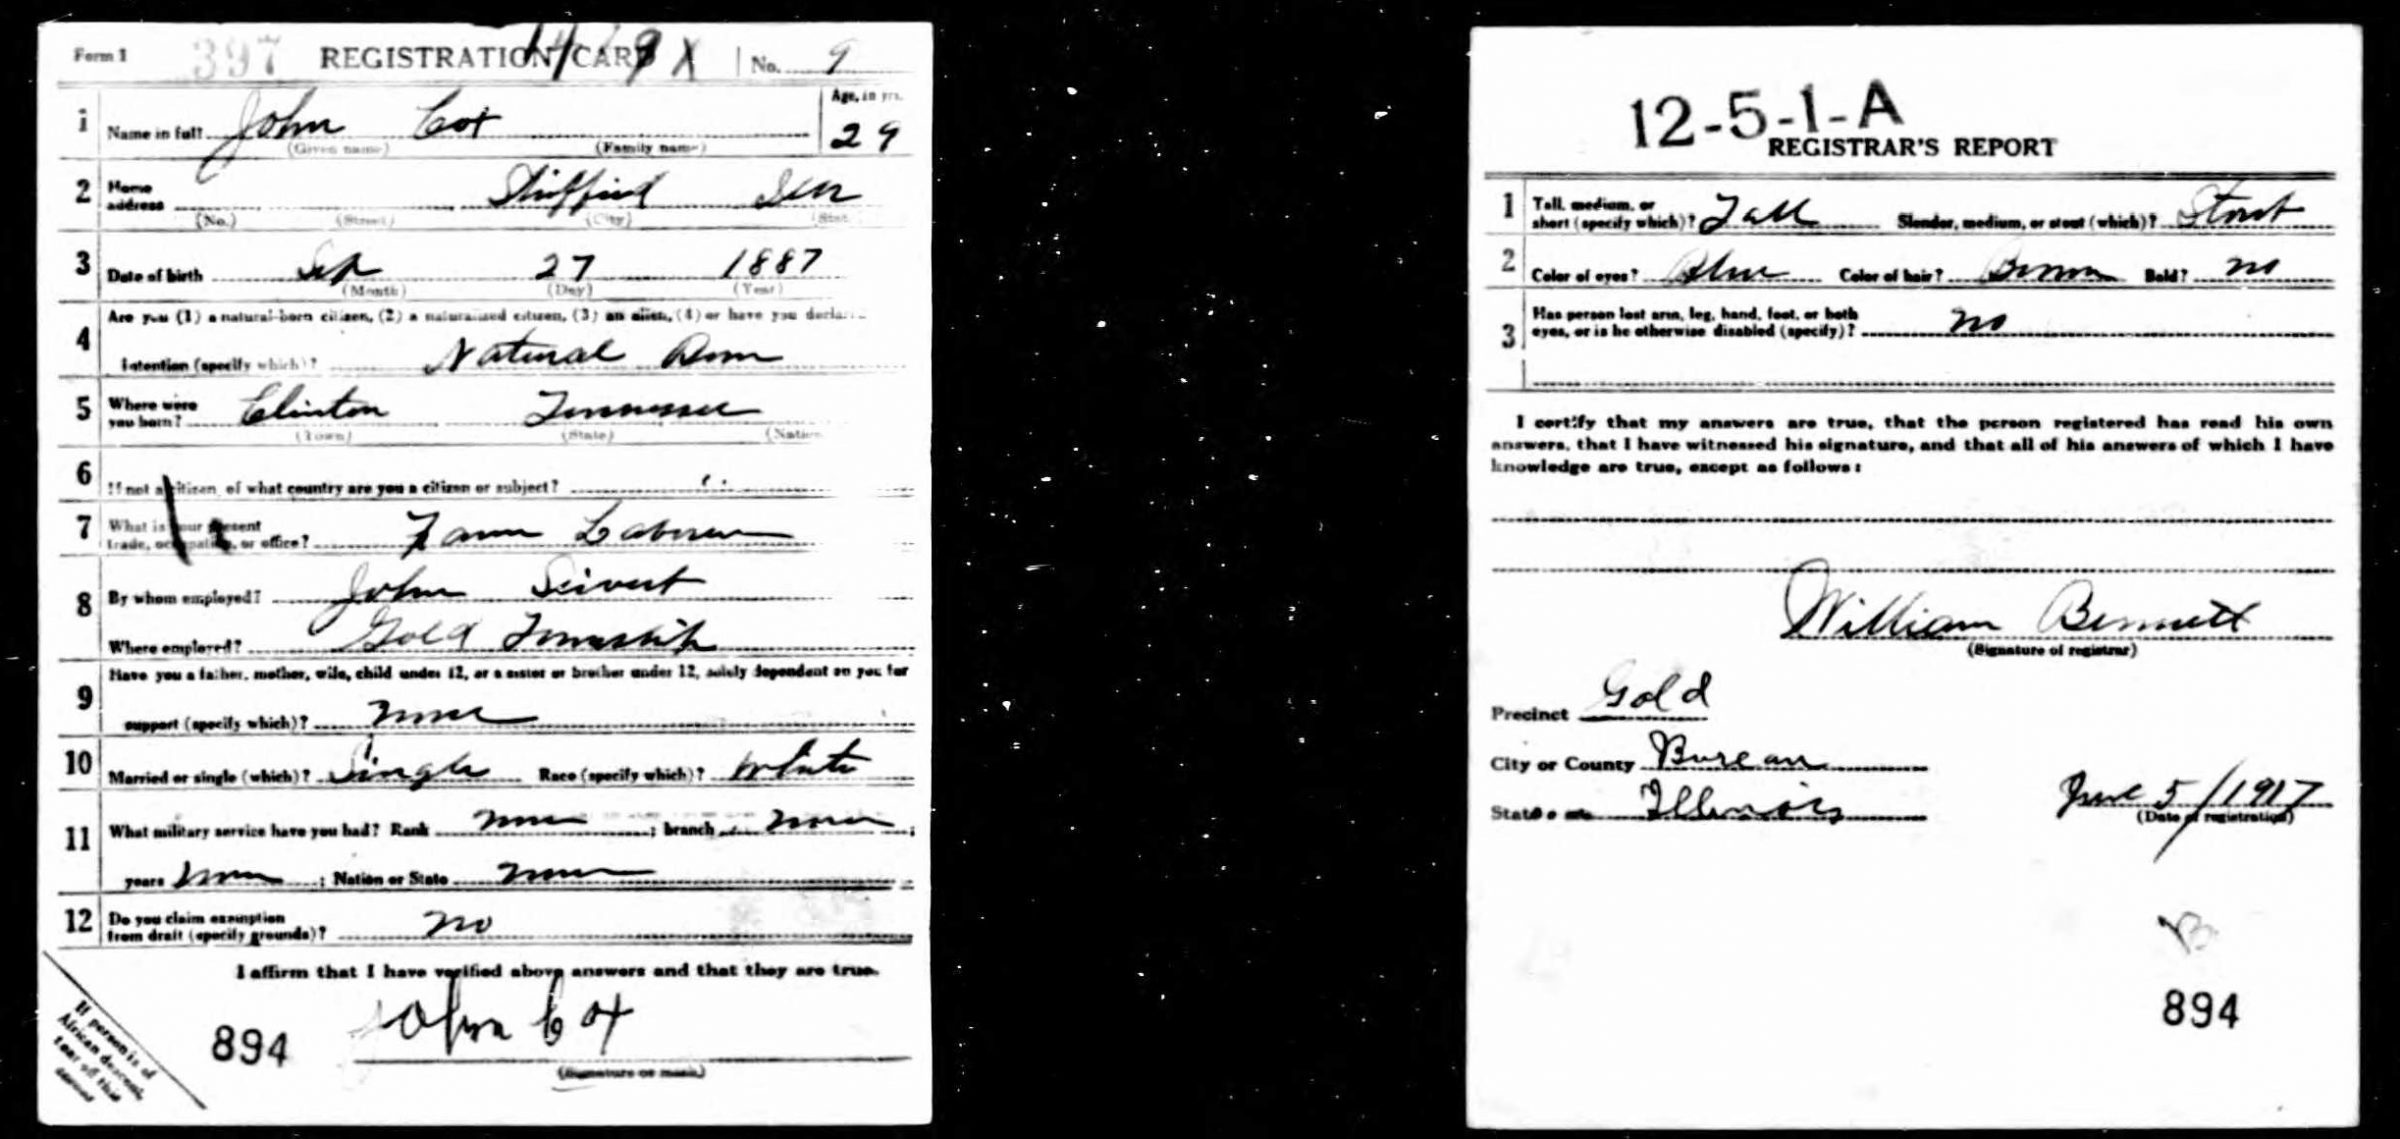 Form 1 397 REGISTRATION CARD No. 9
1 Name in full John Cox Age, in yrs. 29
(Given name) (Family name)
2 Home address Sheffield Ills
(No.) (Street) (City) (State)
3 Date of birth Sep 27 1887
(Month) (Day) (Year)
4 Are you (1) a natural-born citizen, (2) a naturalized citizen, (3) an alien, (4) or have you declared
intention (specify which)? Natural Born
5 Where were you born? Clinton Tennessee
(Town) (State) (Nation)
6 If not a citizen, of what country are you a citizen or subject?
7 What is your present trade, occupation, or office? Farm Laborer
8 By whom employed? John Seivert
Where employed? Gold Township
9 Have you a father, mother, wife, child under 12, or a sister or brother under 12, solely dependent on you for
support (specify which)? None
10 Married or single (which)? Single Race (specify which)? White
11 What military service have you had? Rank None ; branch None ;
years None ; Nation or State None
12 Do you claim exemption from draft (specify grounds)? No
I affirm that I have verified above answers and that they are true.
894 John Cox
(Signature or mark)
If person is of
African descent,
tear off this
corner
12-5-1-A
REGISTRAR'S REPORT
1 Tall, medium, or short (specify which)? Tall Slender, medium, or stout (which)? Stout
2 Color of eyes? Blue Color of hair? Brown Bald? No
3 Has person lost arm, leg, hand, foot, or both
eyes, or is he otherwise disabled (specify)? No
I certify that my answers are true, that the person registered has read his own
answers, that I have witnessed his signature, and that all of his answers of which I have
knowledge are true, except as follows:
William Bennett
(Signature of registrar)
Precinct Gold
City or County Bureau
State Illinois June 5/1917
(Date of registration)
B
894